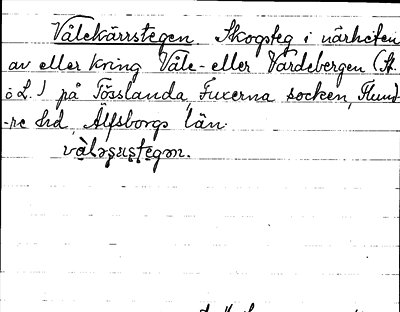 Vålekärrstegen. Skogsteg i närheten
av eller kring Våle- eller Vårdebergen (St.
o L.) på Tösslanda, Fuxerna socken, Flund-
-re hd, Älfsborgs län.